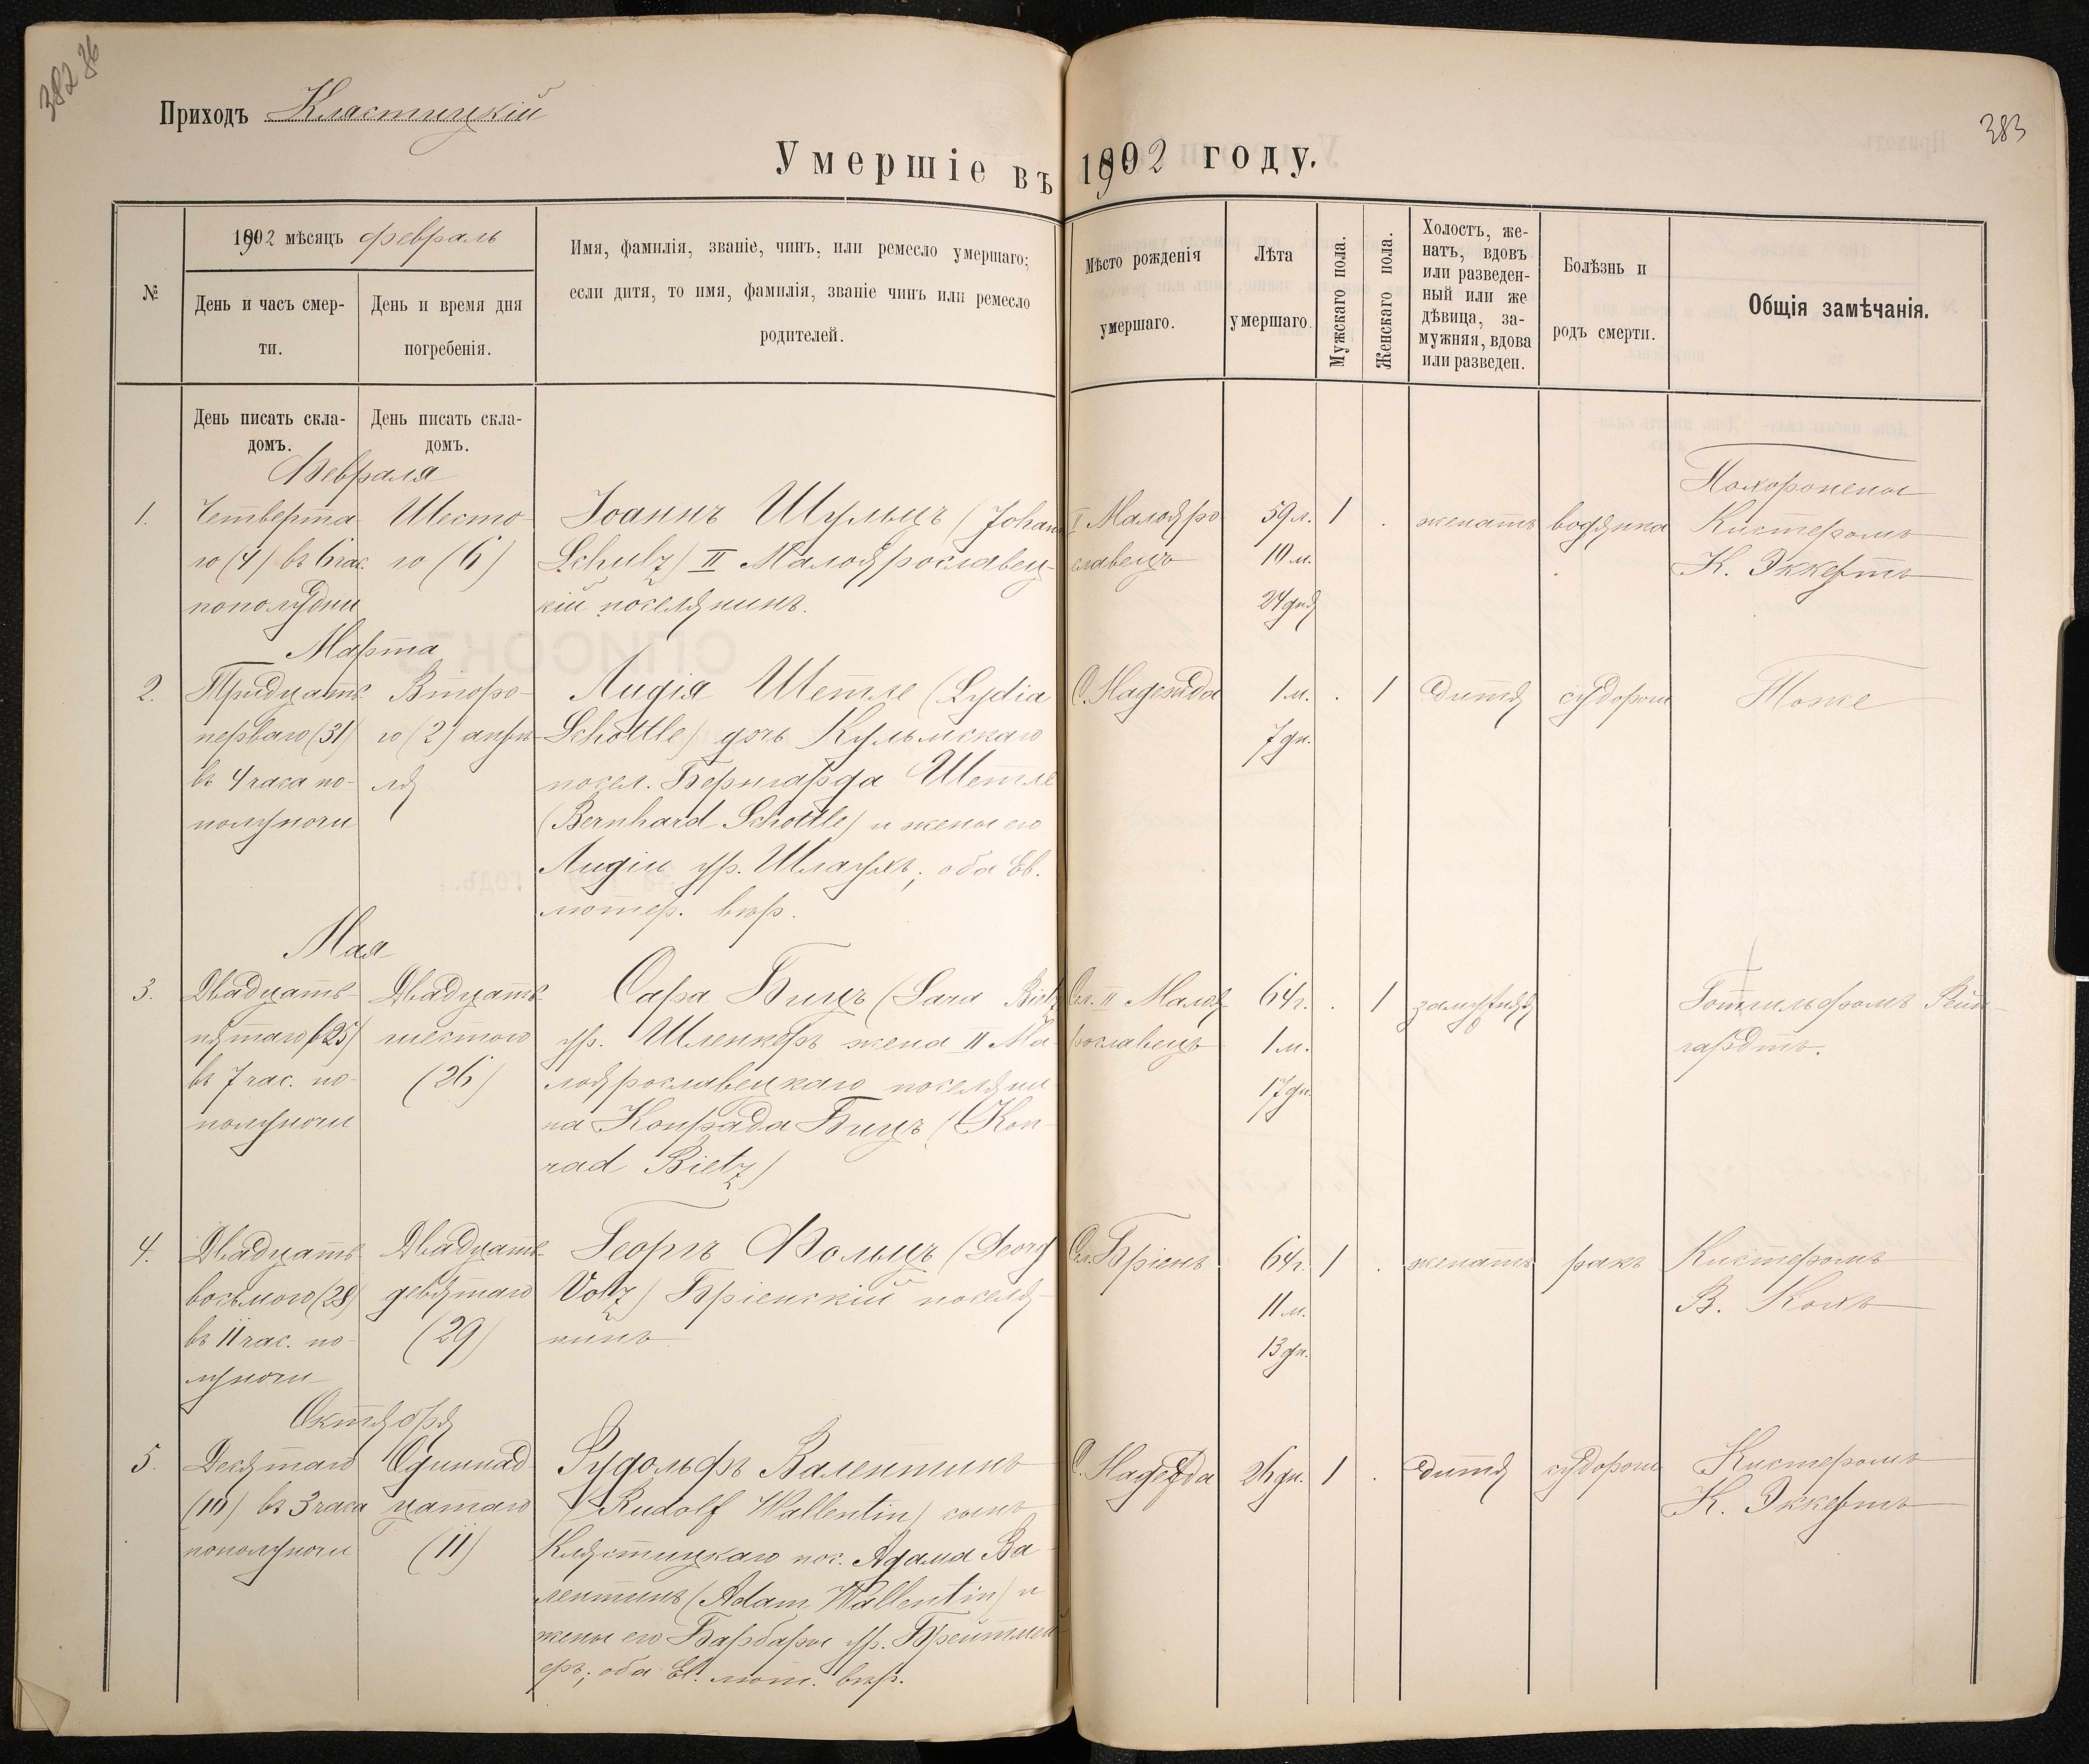 382 36
383
Приходъ Кластицкій
Умершіе въ 1902 году.
№
1902 мѣсяцъ февраль
День и часъ смер-
ти.
День и время дня
погребенія.
Имя, фамилія, званіе, чинъ, или ремесло умершаго;
если дитя, то имя, фамилія, званіе чинъ или ремесло
родителей.
Мѣсто рожденія
умершаго.
Лѣта
умершаго.
Мужскаго пола.
Женскаго пола.
Холостъ, же-
натъ, вдовъ
или разведен-
ный или же
дѣвица, за-
мужняя, вдова
или разведен.
Болѣзнь и
родъ смерти.
Общія замѣчанія.
День писать скла-
домъ.
День писать скла-
домъ.
Февраля
1.
Четверта-
го (4) въ 6 час.
пополудни
Шесто-
го (6)
Іоаннъ Шульцъ (Johann
Schulz) II Малоярославец-
кій поселянинъ.
I Малояро-
славецъ
59 л.
10 м.
24 дня
1
.
женатъ
водянка
Похоронены
Кистеромъ
К. Эккертъ
Марта
2.
Тридцать
перваго (31)
въ 4 часа по-
полуночи
Второ-
го (2) апрѣ-
ля
Лидія Шетле (Lydia
Schöttle) дочь Кульмскаго
посел. Бернгарда Шетле
(Bernhard Schöttle) и жены его
Лидіи ур. Шлаухъ; оба Ев.
лютер. вѣр.
С. Надежда
1 м.
7 дн.
.
1
дитя
судороги
Тоже
Мая
3.
Двадцать
пятаго (25)
въ 7 час. по-
полуночи
Двадцать
шестого
(26)
Сара Бицъ (Sara Bietz
ур. Шленкеръ жена II Ма-
лоярославецкаго поселяни-
на Конрада Бицъ (Kon-
rad Bietz)
Сел. II Малоя-
рославецъ
64 г.
1 м.
17 дн.
.
1
замужняя
Готтильфомъ Рейн-
гардтъ.
4.
Двадцать
восьмого (28)
въ 11 час. по-
луночи
Двадцать
девятаго
(29)
Георгъ Фольцъ (Georg
Volz) Бріенскій поселя-
нинъ
Сел. Бріенъ
64 г.
11 м.
13 дн.
1
.
женатъ
ракъ
Кистеромъ
В. Кохъ
Октября
5.
Десятаго
(10) въ 3 часа
пополуночи
Одиннад-
цатаго
(11)
Рудольфъ Валентинъ
(Rudolf Wallentin) сынъ
Клястицкаго пос. Адама Ва-
лентинъ (Adam Wallentin) и
жены его Барбары ур. Брейтмей-
еръ; оба Ев. лют. вѣр.
С. Надежда
26 дн.
1
.
дитя
судороги
Кистеромъ
К. Эккертъ